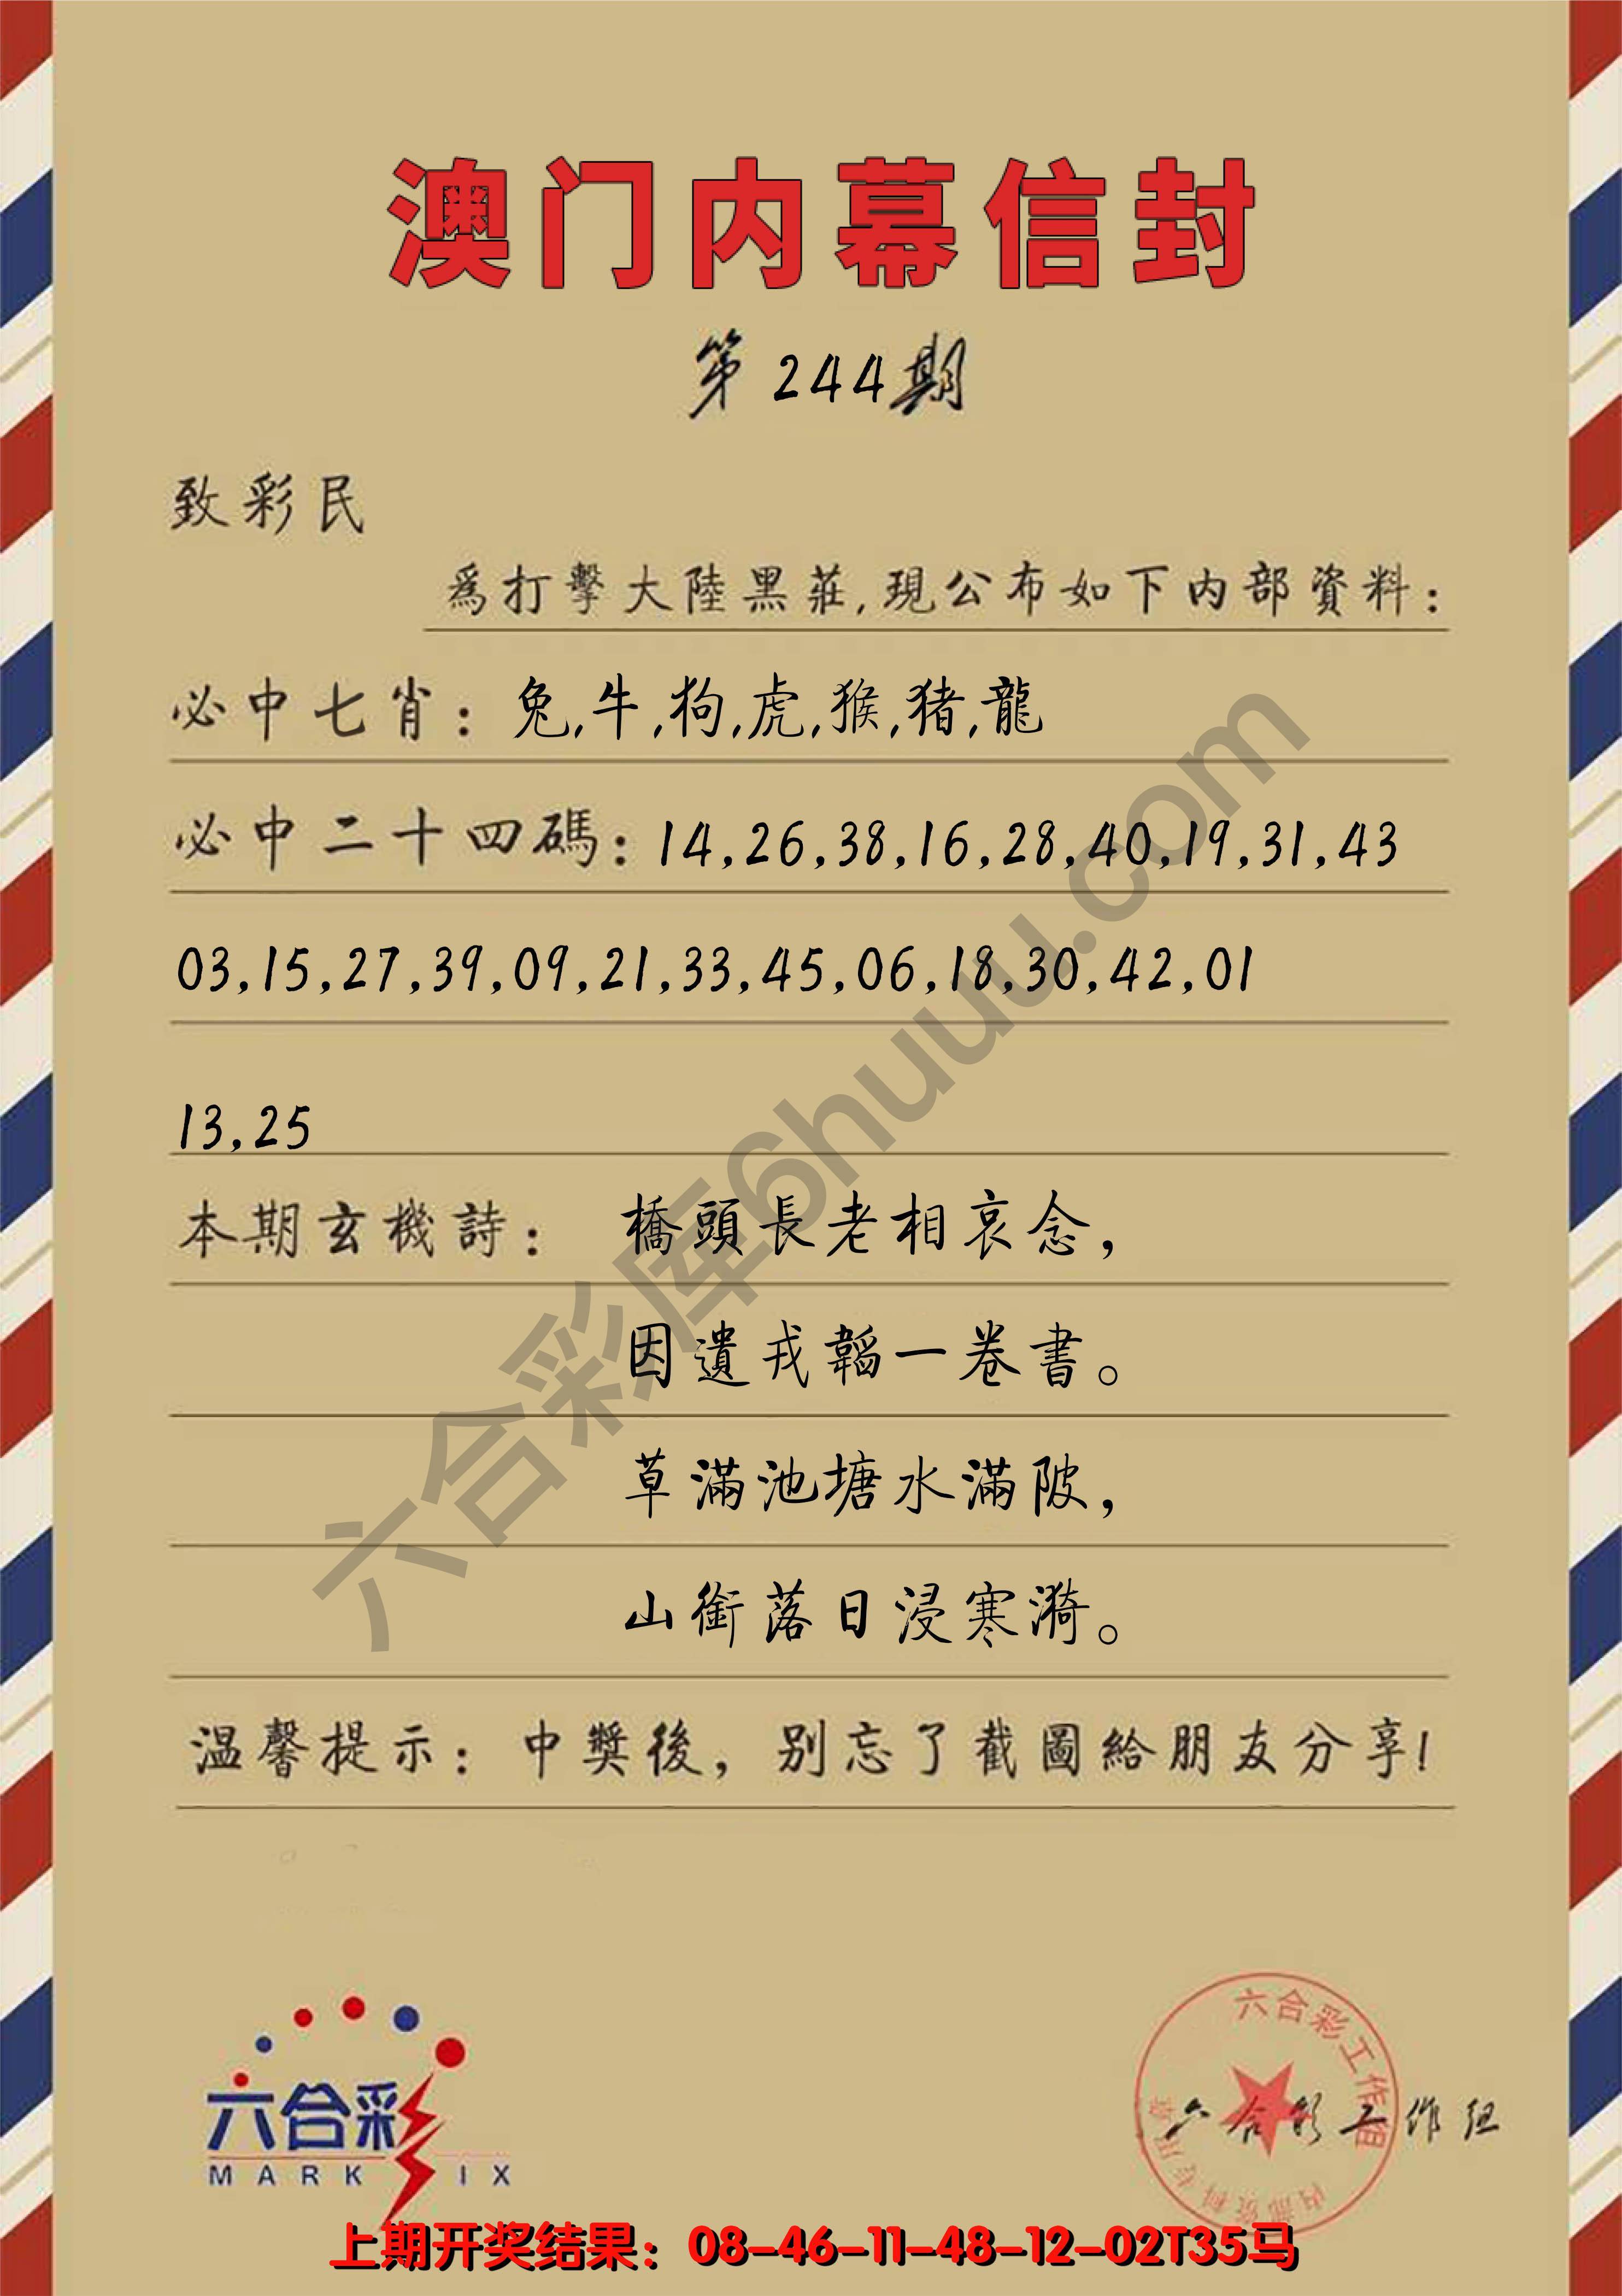 澳门内幕信封
第244期
致彩民
為打擊大陸黑莊,現公布如下内部資料:
必中七肖:兔,牛,狗,虎,猴,猪,龍
必中二十四碼:14,26,38,16,28,40,19,31,43
03,15,27,39,09,21,33,45,06,18,30,42,01
13,25
本期玄機詩: 橋頭長老相哀念,
因遺戎韜一卷書。
草滿池塘水滿陂,
山銜落日浸寒漪。
温馨提示:中獎後,别忘了截圖給朋友分享!
六合彩库6huuu.com
六合彩
MARK IX
六合彩工作组
内部资料专用章
六合彩工作组
上期开奖结果:08-46-11-48-12-02T35马